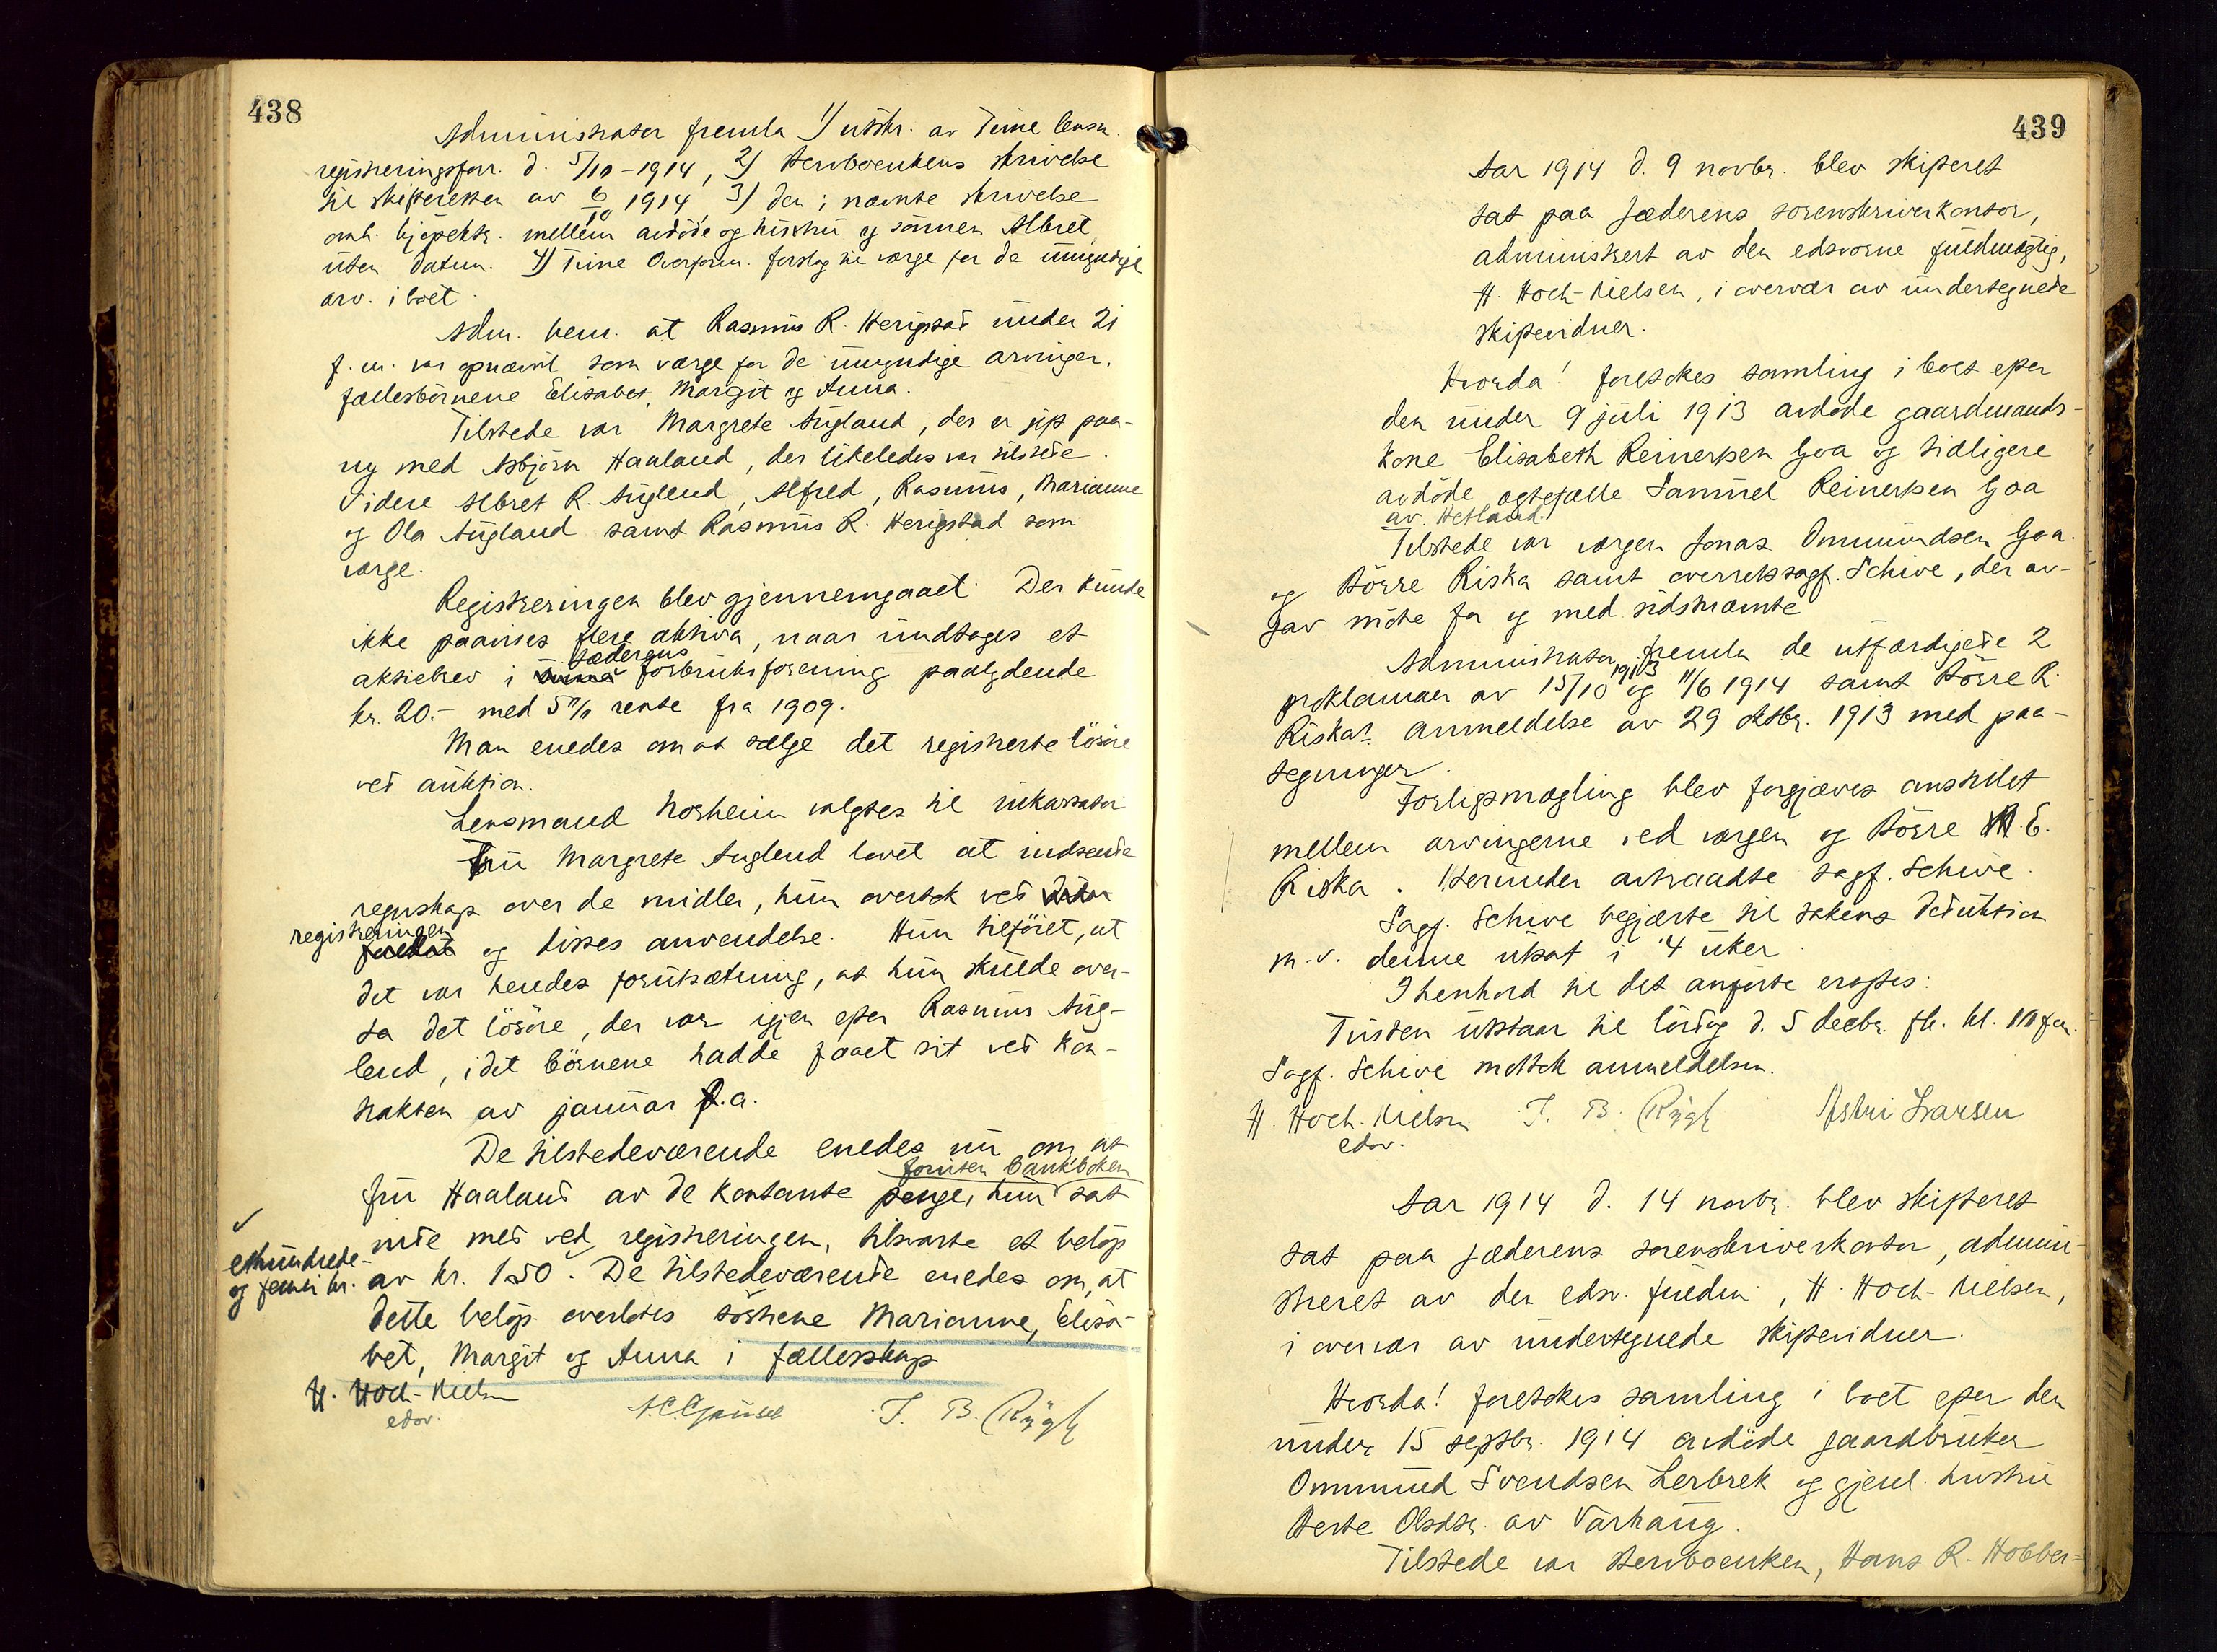 438
Administrator fremla 1) utskr. av Time lensm.
registreringsforr. d. 5/10-1914, 2) Stervboenkens skrivelse
til skifteretten av 6/10 1914, 3) den i nævnte skrivelse
omh. kjøpektr. mellem avdøde og hustru og sønnen Albret,
uten datum. 4) Time Overform. forslag til værge for de umyndige
arv. i boet.
Adm. bem. at Rasmus R. Herigstad under 21
f. m. var opnævnt som værge for de umyndige arvinger,
fællesbørnene Elisabet, Margit og Anna.
Tilstede var Margrete Augland, der er gift paa-
ny med Asbjørn Haaland, der likeledes var tilstede.
Videre Albret R. Auglend, Alfred, Rasmus, Marianne
og Ola Augland samt Rasmus R. Herigstad som
værge.
Registreringen blev gjennemgaaet. Der kunde
ikke paavises flere aktiva, naar undtages et
Jæderens
aksiebrev i Time forbruksforening paalydende
kr. 20.- med 5% rente fra 1909.
Man enedes om at sælge det registrerte løsøre
ved auktion.
Lensmand Norheim valgtes til inkassator
Fru Margrete Auglend lovet at indsende
regnskap over de midler, hun overtok ved
registreringen
og disses anvendelse. Hun tilføiet, at
det var hendes forutsætning, at hun skulde over-
ta det løsøre, der var igjen efter Rasmus Aug-
lend, idet børnene hadde faaet sit ved kon-
trakten av januar d.a.
De tilstedeværende enedes nu om, at
foruten bankboken
fru Haaland av de kontante penge, hun sat
inde med ved registreringen, tilsvarte et beløp
ethundrede
og femti kr. av kr. 150. De tilstedeværende enedes om, at
dette beløp overlotes søstrene Marianne, Elisa-
bet, Margit og Anna i fællesskap
H. Hoch-Nielsen
edsv.
T. B. Rygh
439
Aar 1914 d. 9 novbr. blev skifteret
sat paa Jæderens sorenskriverkontor,
administrert av den edsvorne fuldmægtig,
H. Hoch-Nielsen, i overvær av undertegnede
skiftevidner.
Hvorda! foretokes samling i boet efter
den under 9 juli 1913 avdøde gaardmands-
kone Elisabeth Reinertsen Goa og tidligere
avdøde egtefælle Samuel Reinertsen Goa
av Hetland.
Tilstede var værgen Jonas Ommundsen Goa.
og Børre Riska samt overretssagf. Schive, der av-
gav møte for og med sidstnævnte
Administrator fremla de utfærdigede 2
proklamaer av 15/10 1913 og 11/6 1914 samt Børre R.
Riskas anmeldelse av 29 oktbr. 1913 med paa-
tegninger.
Forligsmægling blev forgjæves anstillet
mellem arvingerne ved værgen og Børre R. E.
Riska. Herunder avtraadte sagf. Schive.
Sagf. Schive begjærte til sakens deduktion
m. v. denne utsat i 4 uker.
I henhold til det anførte eragtes:
Tvisten utstaar til lørdag d. 5 decbr. fk. kl. 10 fm.
Sagf. Schive mottok anmeldelsen.
H. Hoch-Nielsen T. B. Rygh Astri Larsen
edsv.
Aar 1914 d. 14 novbr. blev skifteret
sat paa Jæderens sorenskriverkontor, admini-
streret av den edsv. fuldm., H. Hoch-Nielsen,
i overvær av undertegnede skiftevidner.
Hvorda! foretokes samling i boet efter den
under 15 septbr. 1914 avdøde gaardbruker
Ommund Svendsen Lerbrek og gjenl. hustru
Berte Olsdtr. av Varhaug.
Tilstede var stervboenken, Hans R. Hobber-